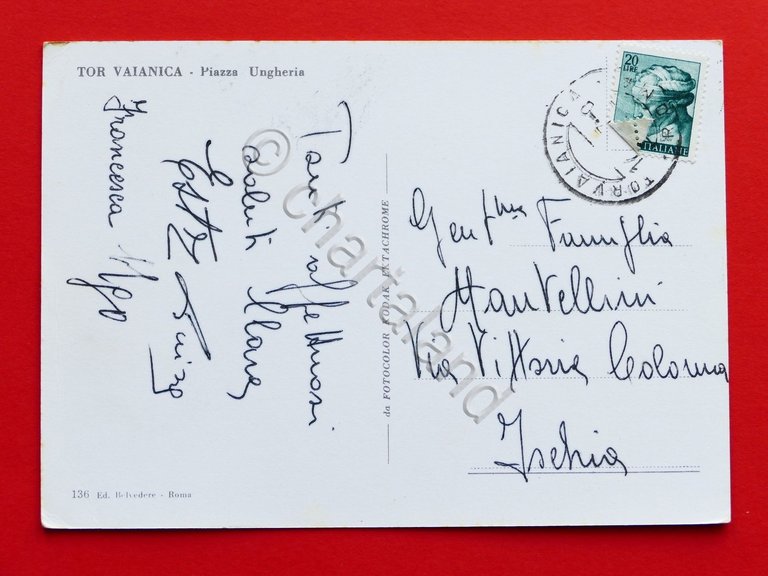 TOR VAIANICA - Piazza Ungheria
Tanti affettuosi
saluti Clara,
Francesca
da FOTOCOLOR KODAK EKTACHROME
20
LIRE
ITALIANE
TORVAIANICA
Gent.ma Famiglia
Mantellini
Via Vittoria Colonna
Ischia
136 Ed. Belvedere - Roma
© chartaland